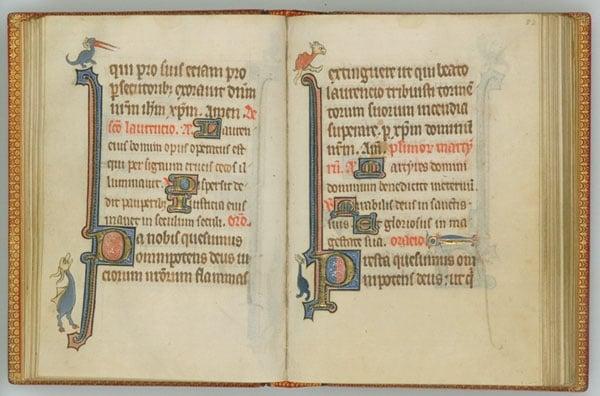 qui pro suis etiam pro
persecutoribꝫ exoravit dnm̄
nr̄m ihm̄ xp̄m. Aperi. De
sc̄o laurencio. A. Lauren
cius bonum opus operatus est
qui per signum crucis cecos il
luminavit. Dispersit de
dit pauperibꝫ Iusticia eius
manet in seculum seculi. oro.
Da nobis quesumus
omnipotens deus vi
ciorum nr̄orum flammas
82
extinguere ut qui beato
laurencio tribuisti tormē
torum suorum incendia
superare. p. xp̄m dominū
nr̄m. Am̄. plurimor. marty
rū. A. Martyres domini
dominum benedicite ineternū.
Mirabilis deus in sanctis
suis Et gloriosus in ma
gestate sua. oracio
Presta quesumus om
nipotens deus: ut q̄